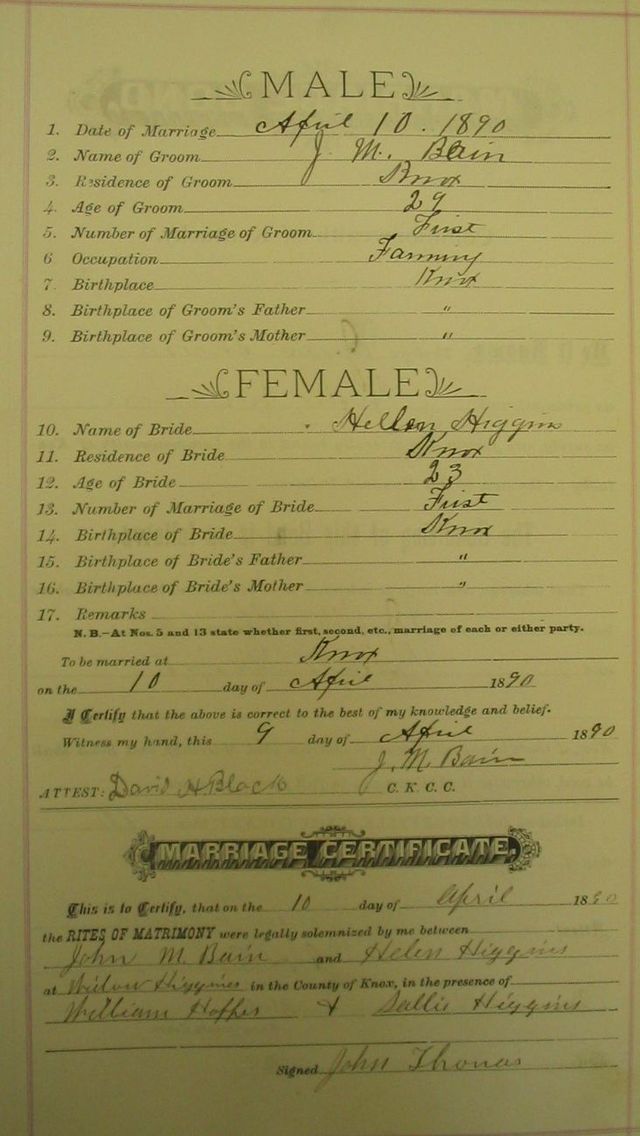 MALE
1. Date of Marriage April 10. 1890
2. Name of Groom J. M. Bain
3. Residence of Groom Knox
4. Age of Groom 29
5. Number of Marriage of Groom First
6 Occupation Farming
7 Birthplace Knox
8. Birthplace of Groom's Father "
9. Birthplace of Groom's Mother "
FEMALE
10. Name of Bride Hellen Higgins
11. Residence of Bride Knox
12. Age of Bride 23
13. Number of Marriage of Bride First
14. Birthplace of Bride Knox
15. Birthplace of Bride's Father "
16. Birthplace of Bride's Mother "
17. Remarks
N. B.—At Nos. 5 and 13 state whether first, second, etc., marriage of each or either party.
To be married at Knox
on the 10 day of April 1890
I Certify that the above is correct to the best of my knowledge and belief.
Witness my hand, this 9 day of April 1890
J. M. Bain
ATTEST: David H. Black C. K. C. C.
MARRIAGE CERTIFICATE.
This is to Certify, that on the 10 day of April 1890
the RITES OF MATRIMONY were legally solemnized by me between
John M. Bain and Helen Higgins
at Higgins in the County of Knox, in the presence of
William & Sallie Higgins
Signed John Thomas